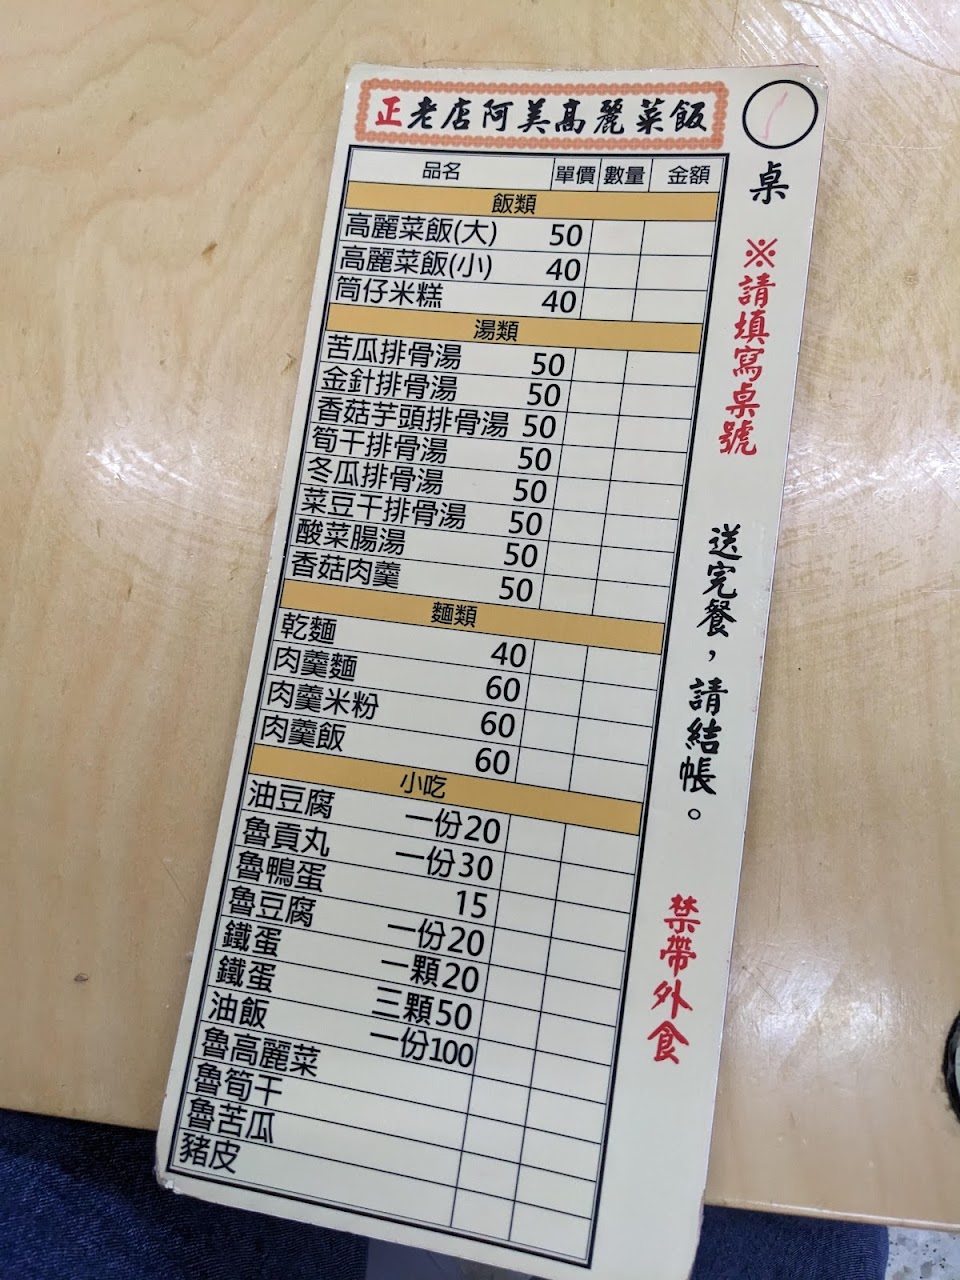 正老店阿美高麗菜飯
桌
品名 單價 數量 金額
飯類
高麗菜飯(大) 50
高麗菜飯(小) 40
筒仔米糕 40
湯類
苦瓜排骨湯 50
金針排骨湯 50
香菇芋頭排骨湯 50
筍干排骨湯 50
冬瓜排骨湯 50
菜豆干排骨湯 50
酸菜腸湯 50
香菇肉羹 50
麵類
乾麵 40
肉羹麵 60
肉羹米粉 60
肉羹飯 60
小吃
油豆腐 一份20
魯貢丸 一份30
魯鴨蛋 15
魯豆腐 一份20
鐵蛋 一顆20
鐵蛋 三顆50
油飯 一份100
魯高麗菜
魯筍干
魯苦瓜
豬皮
※請填寫桌號
送完餐，請結帳。
禁帶外食